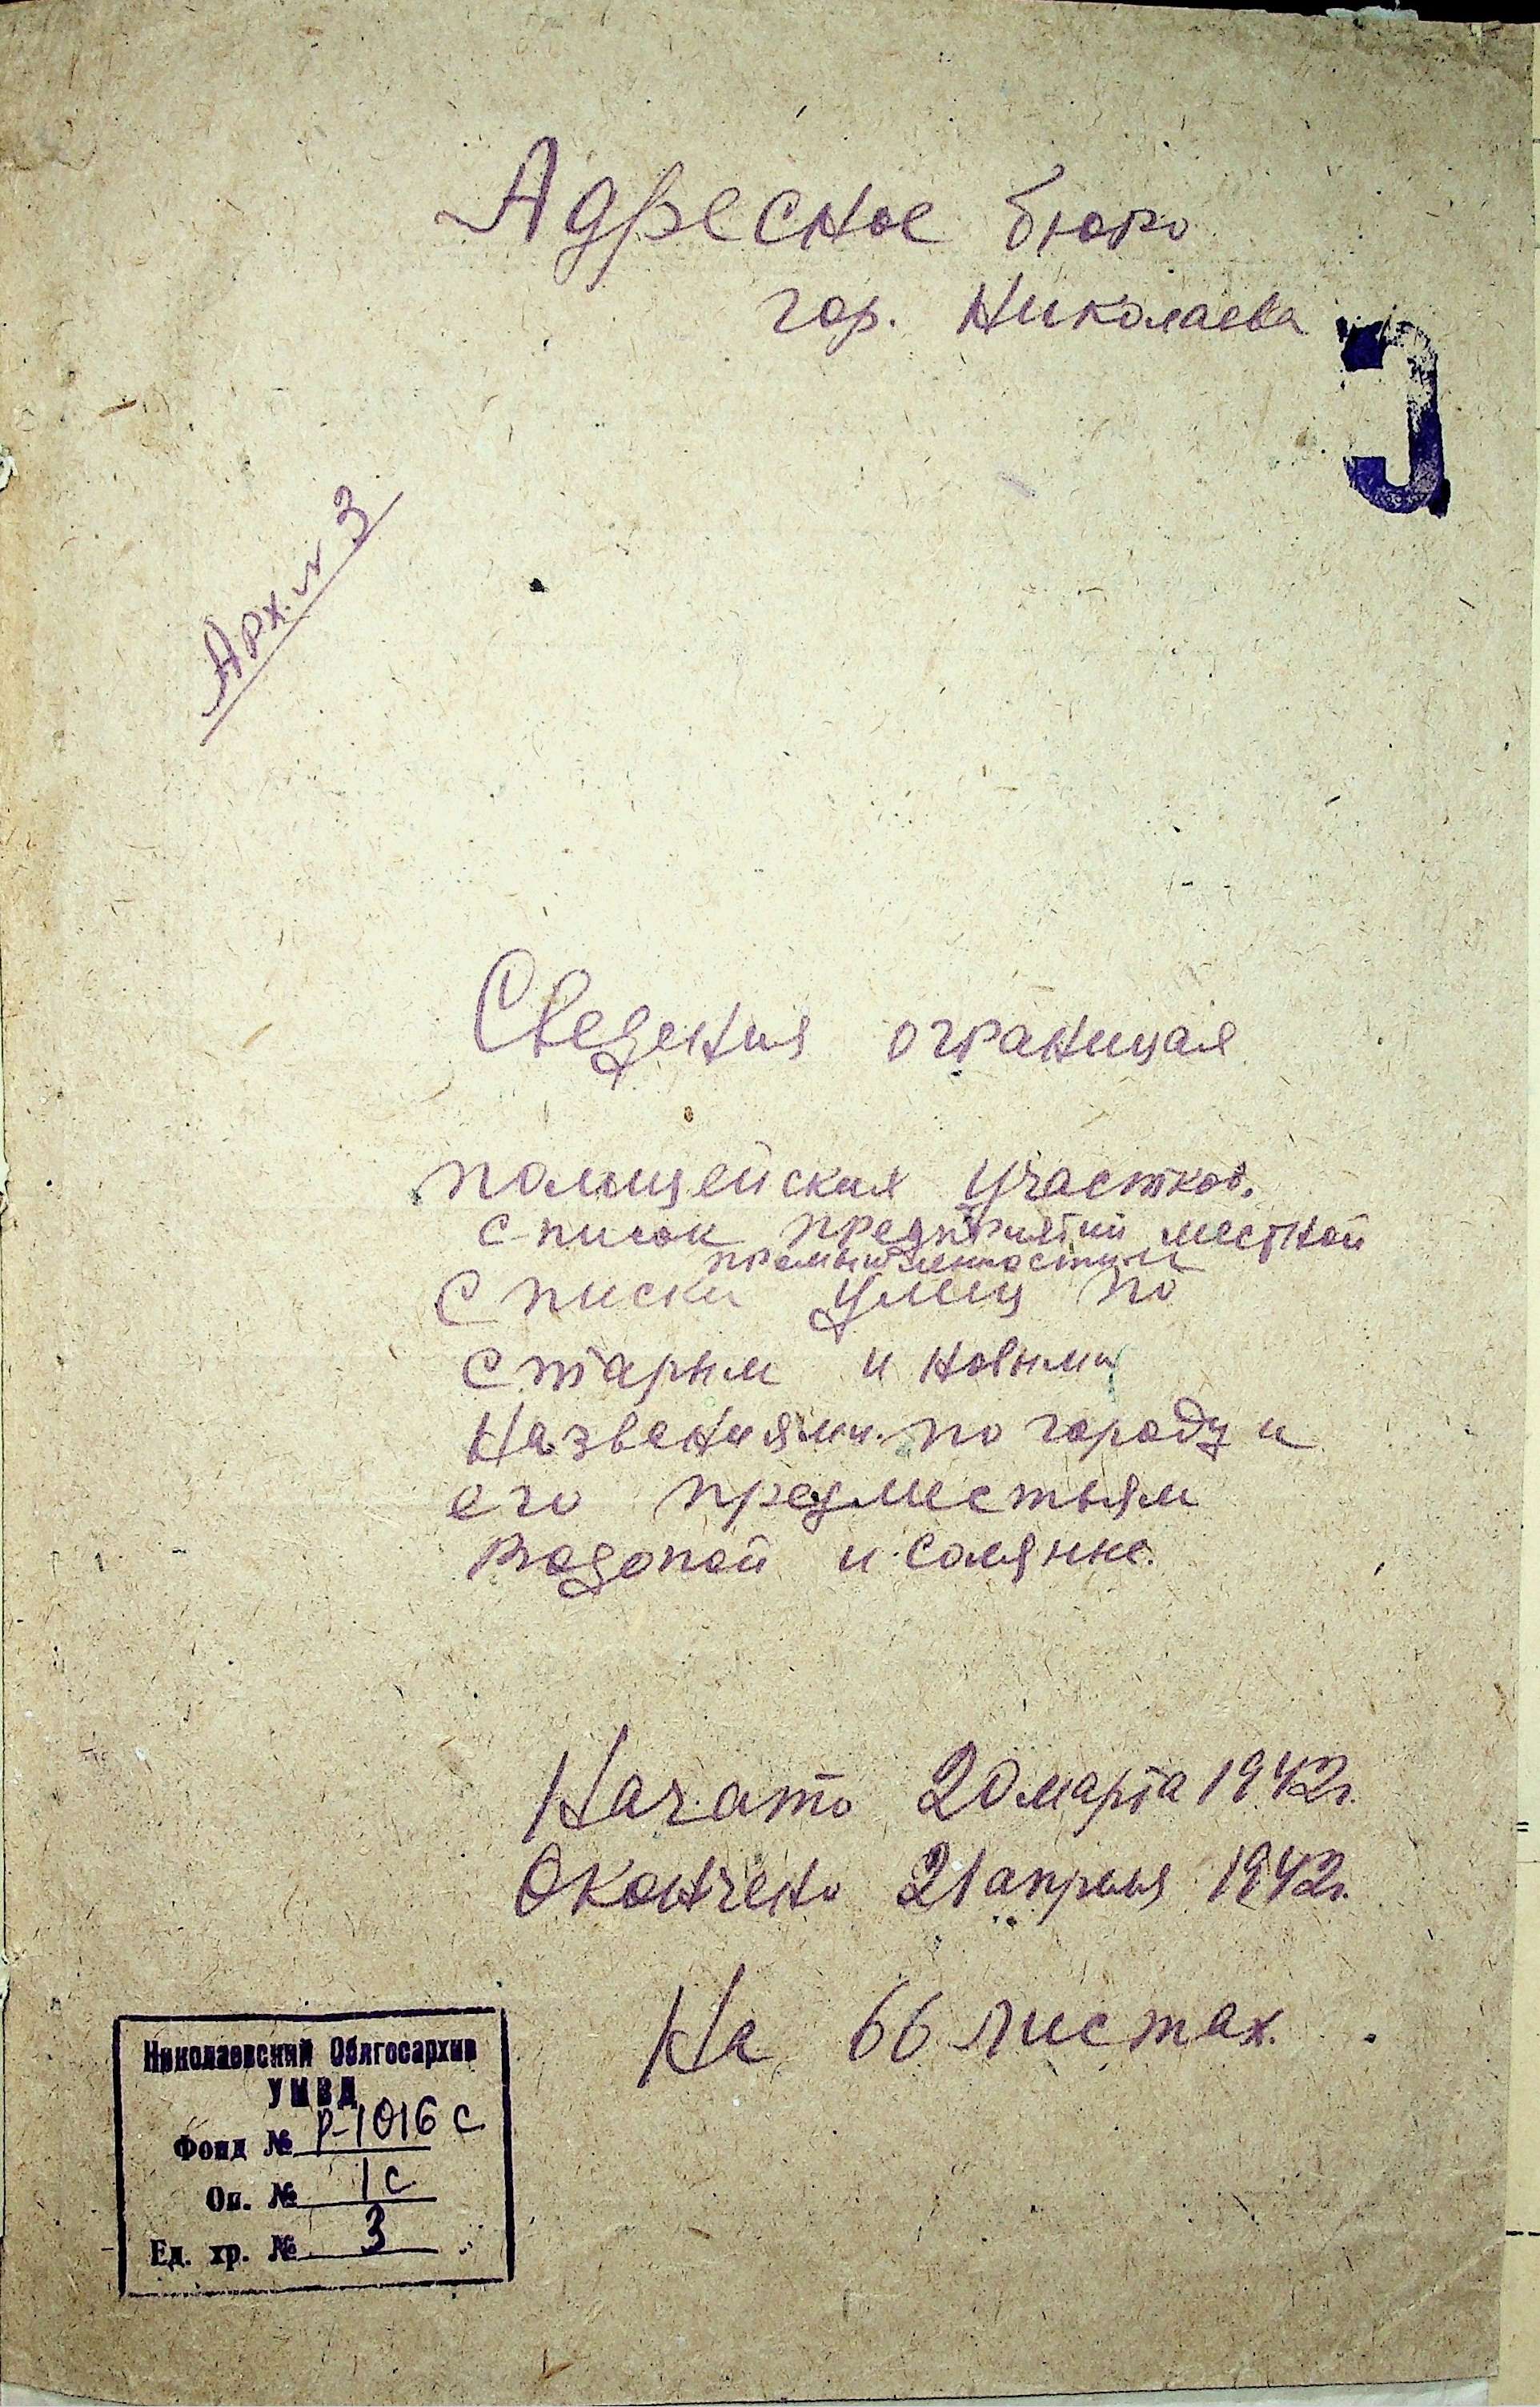 Адресное бюро
гор. Николаева
3
Арх. № 3
Сведения о границах
полицейских участков.
список предприятий местной
промышленности и
Списки улиц по
старым и новыми
названиями по городу и
его предместьям
Водопой и Солянке.
Начато 20 марта 1942 г.
Окончено 21 апреля 1942 г.
На 66 листах.
Николаевский Облгосархив
УМВД
Фонд № Р-1016 с
Оп. № 1 с
Ед. хр. № 3